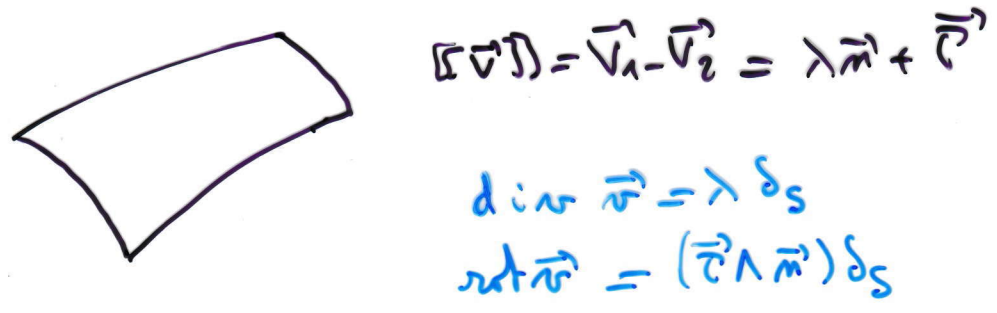 [[v⃗]] = V⃗₁ - V⃗₂ = λn⃗ + τ⃗
div v⃗ = λ δ_S
rot v⃗ = (τ⃗ ∧ n⃗) δ_S